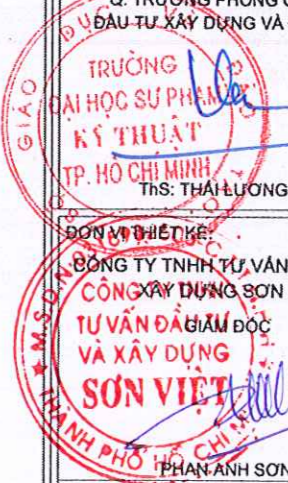 Q. TRƯỞNG PHÒNG
ĐẦU TƯ XÂY DỰNG VÀ
GIÁO DỤC
TRƯỜNG
ĐẠI HỌC SƯ PHẠM
KỸ THUẬT
TP. HỒ CHÍ MINH
ThS: THÁI LƯƠNG
ĐƠN VỊ THIẾT KẾ:
CÔNG TY TNHH TƯ VẤN
XÂY DỰNG SƠN
GIÁM ĐỐC
M.S.D.N
CÔNG TY
TƯ VẤN ĐẦU TƯ
VÀ XÂY DỰNG
SƠN VIỆT
THÀNH PHỐ HỒ CHÍ
PHAN ANH SƠN